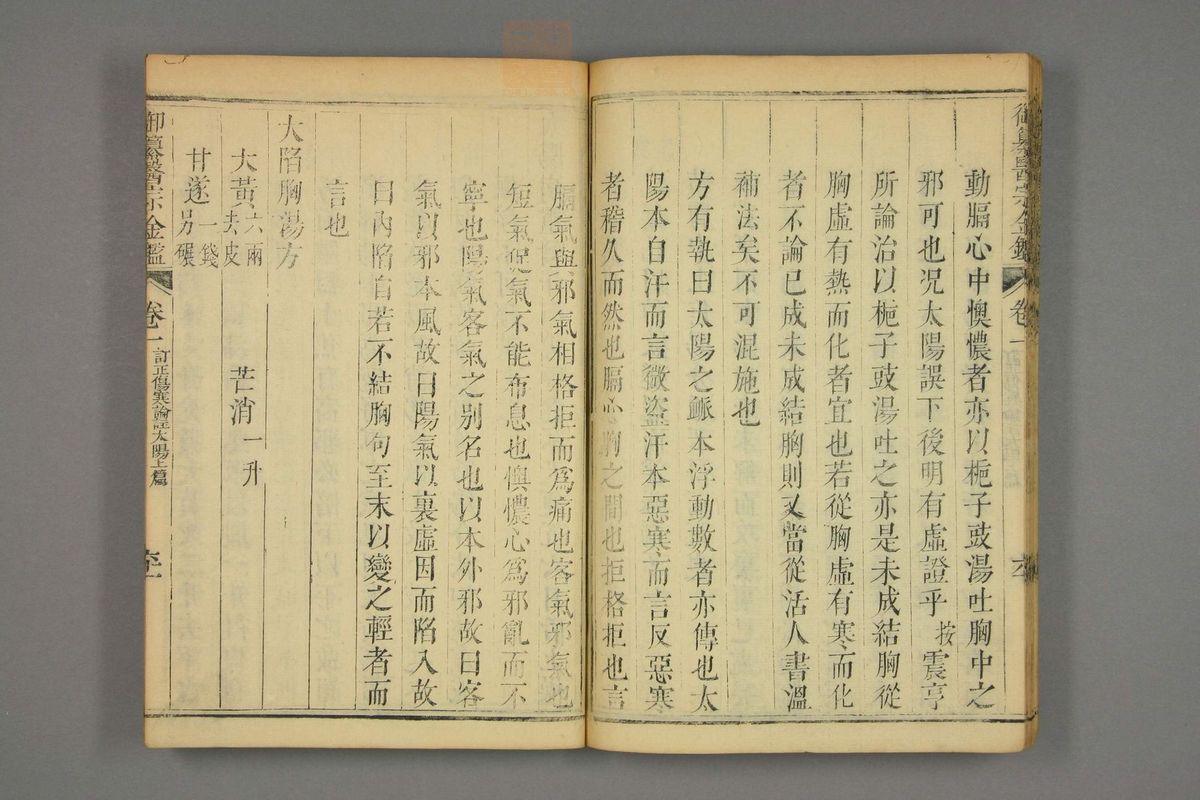 御纂醫宗金鑑 卷一 六十
動膈心中懊憹者亦以梔子豉湯吐胸中之
邪可也况太陽誤下後明有虛證乎 按震亨
所論治以梔子豉湯吐之亦是未成結胸從
胸虛有熱而化者宜也若從胸虛有寒而化
者不論已成未成結胸則又當從活人書溫
補法矣不可混施也
方有執曰太陽之脈本浮動數者亦傳也太
陽本自汗而言微盜汗本惡寒而言反惡寒
者稽久而然也膈心胸之間也拒格拒也言
膈氣與邪氣相格拒而爲痛也客氣邪氣也
短氣促氣不能布息也懊憹心爲邪亂而不
寧也陽氣客氣之別名也以本外邪故曰客
氣以邪本風故曰陽氣以裏虛因而陷入故
曰內陷自若不結胸句至末以變之輕者而
言也
大陷胸湯方
大黃六兩去皮 芒消一升
甘遂一錢另碾
御纂醫宗金鑑 卷一 訂正傷寒論註太陽上篇 六十一